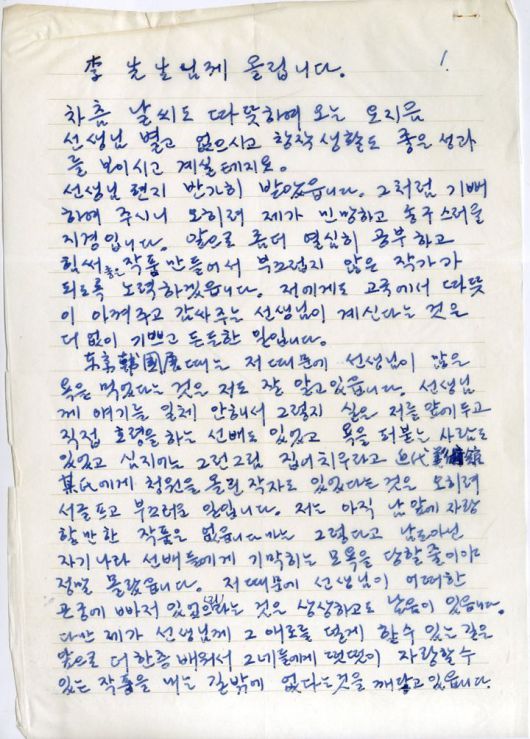 李 先生님께 올립니다. 1.
차츰 날씨도 따뜻하여 오는 요지음
선생님 별고 없으시고 창작생활도 좋은 성과
를 보이시고 계실테지요.
선생님 편지 반가히 받았읍니다. 그처럼 기뻐
하여 주시니 오히려 제가 민망하고 송구스러울
지경입니다. 앞으로 좀더 열심히 공부하고
힘써 좋은 작품 만들어서 부끄럽지 않은 작가가
되도록 노력하겠읍니다. 저에게도 고국에서 따뜻
이 아껴주고 감싸주는 선생님이 계신다는 것은
더없이 기쁘고 든든한 일입니다.
東京韓国展때는 저때문에 선생님이 많은
욕을 먹었다는 것은 저도 잘 알고있읍니다. 선생님
께 얘기는 일체 안해서 그렇지 실은 저를 앞에두고
직접 호령을 하는 선배도 있었고 욕을 퍼붇는 사람도
있었고 심지어는 그런그림 집어치우라고 近代美術館
某氏에게 청원을 올린 작자도 있었다는 것은 오히려
서글프고 부끄러운 일입니다. 저는 아직 남앞에 자랑
할만한 작품은 없읍니다마는 그렇다고 남도아닌
자기나라 선배들에게 기막히는 모욕을 당할줄이야
정말 몰랐읍니다. 저때문에 선생님이 어떠한
곤궁에 빠져 있었으리라는 것은 상상하고도 남음이 있읍니다.
다만 제가 선생님께 그 애로를 덜게 할수 있는 길은
앞으로 더한층 배워서 그네들에게 떳떳이 자랑할수
있는 작품을 내는 길밖에 없다는것을 깨닫고 있읍니다.